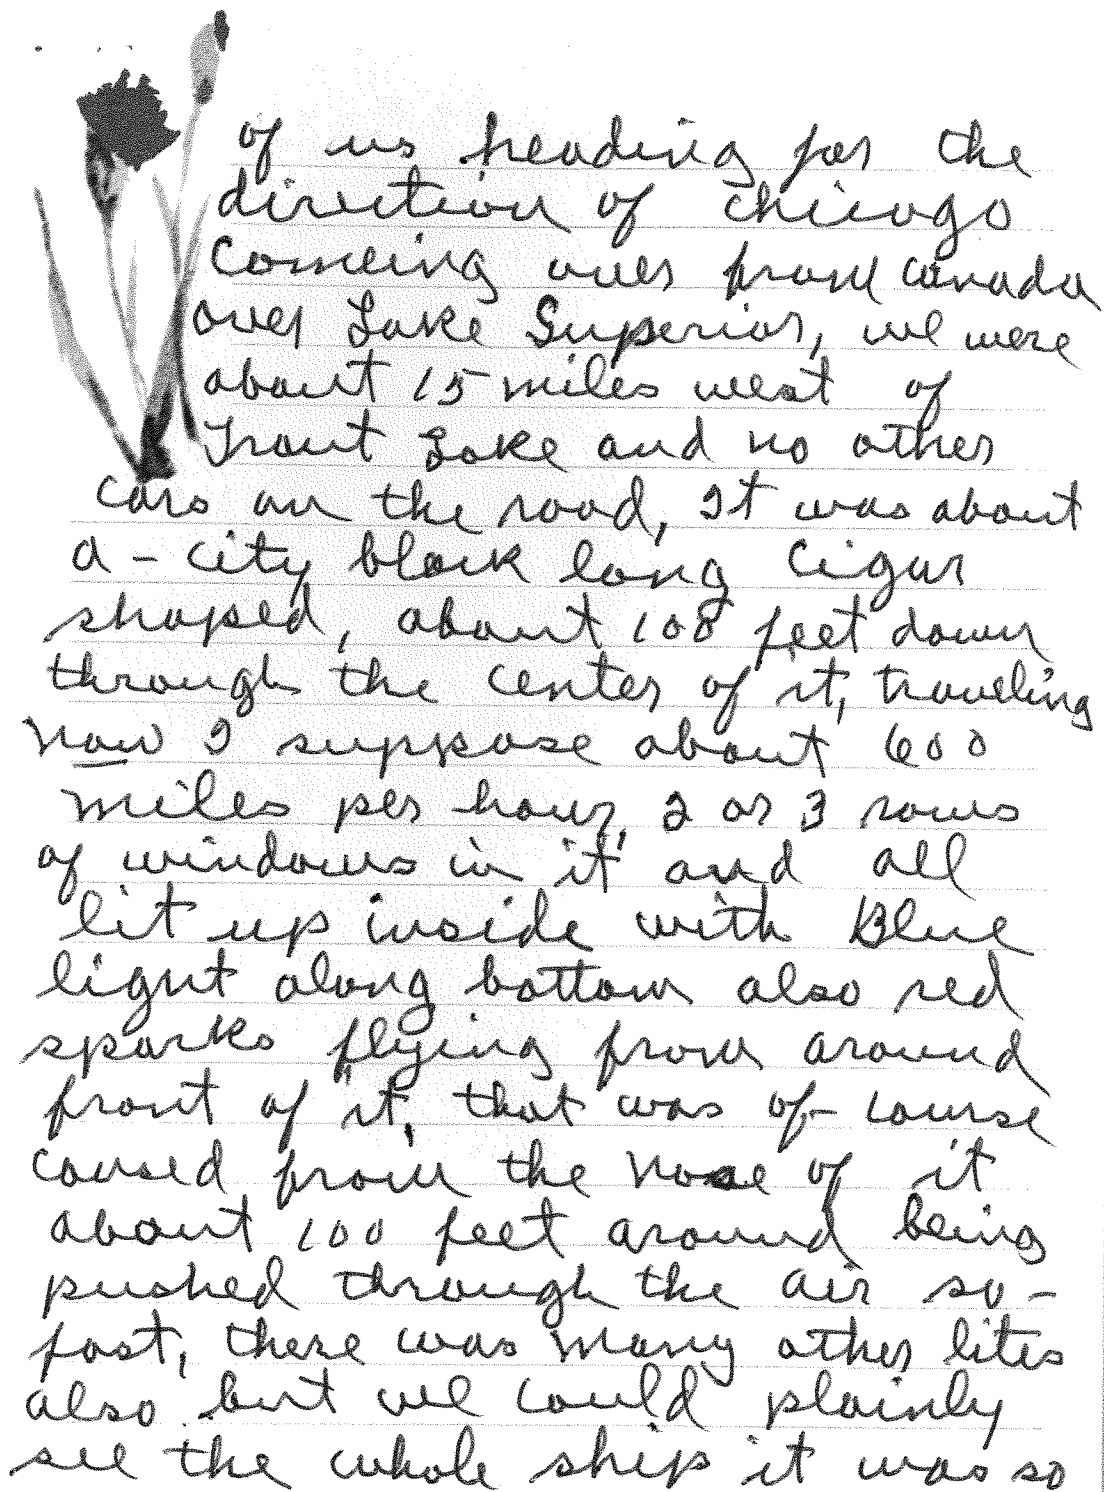 of us heading for the
direction of chicago
comeing over from canada
over Lake Superior, we were
about 15 miles west of
Trout Lake and no other
cars on the road, It was about
a - city block long cigar
shaped, about 100 feet down
through the center of it, traveling
now I suppose about 600
miles per hour, 2 or 3 rows
of windows in it and all
lit up inside with Blue
light along bottom also red
sparks flying from around
front of it, that was of - course
caused from the nose of it
about 100 feet around being
pushed through the air so -
fast, there was many other lites
also but we could plainly
see the whole ship it was so